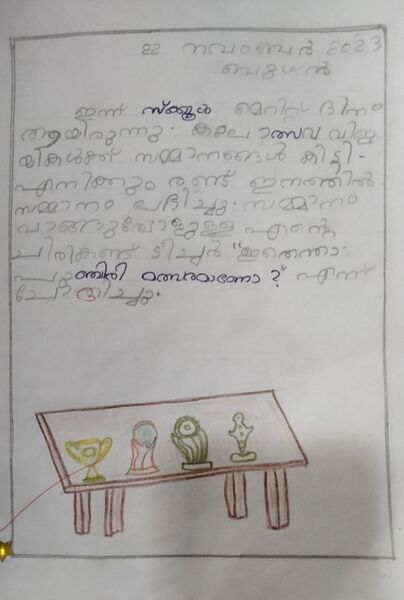 22 നവംബർ 2023
ബുധൻ
ഇന്ന് സ്ക്കൂൾ മെറിറ്റ് ദിനം
ആയിരുന്നു. കലോത്സവ വിജ
യികൾക്ക് സമ്മാനങ്ങൾ കിട്ടി.
എനിക്കും രണ്ട് ഇനത്തിൽ
സമ്മാനം ലഭിച്ചു. സമ്മാനം
വാങ്ങുമ്പോളുള്ള എന്റെ
ചിരികണ്ട് ടീച്ചർ "ഇതെന്താ
പുഞ്ചിരി മത്സരമാണോ?" എന്ന്
ചോദിച്ചു.